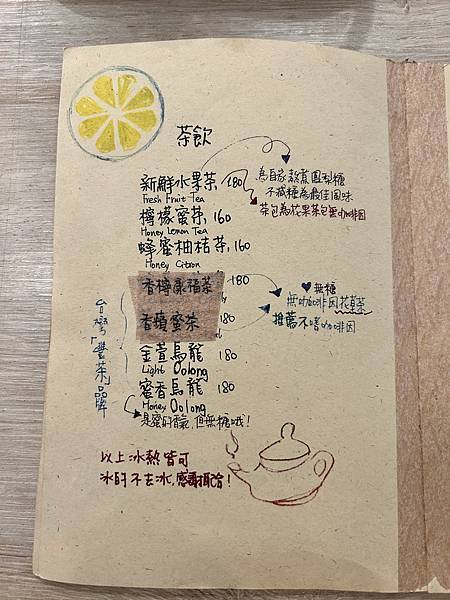 茶飲
新鮮水果茶 180
Fresh Fruit Tea
為自家熬煮鳳梨糖
不減糖為最佳風味
茶包為花果茶包無咖啡因
檸檬蜜茶 160
Honey Lemon Tea
蜂蜜柚桔茶 160
Honey Citron
香檸康福茶 180
♥無糖
無咖啡因花草茶
推薦不嗜咖啡因
香蘋蜜茶 180
金萱烏龍 180
Light Oolong
蜜香烏龍 180
Honey Oolong
是蜜的香氣,但無糖哦!
台灣「豐茶」品牌
以上冰熱皆可
冰的不去冰,感謝